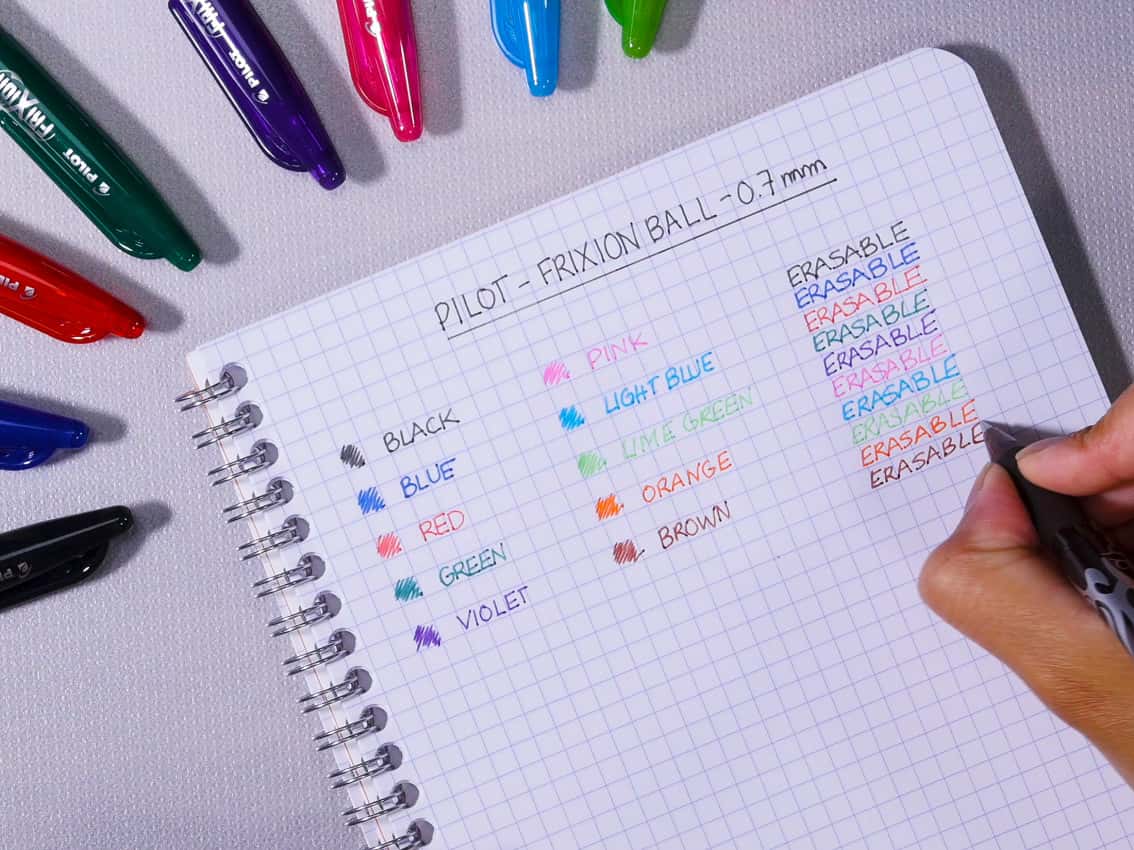 FRIXION
PILOT
FRIXION
PILOT
PILOT
PILOT
PILOT - FRIXION BALL - 0.7 mm
BLACK
BLUE
RED
GREEN
VIOLET
PINK
LIGHT BLUE
LIME GREEN
ORANGE
BROWN
ERASABLE
ERASABLE
ERASABLE
ERASABLE
ERASABLE
ERASABLE
ERASABLE
ERASABLE
ERASABLE
ERASABLE